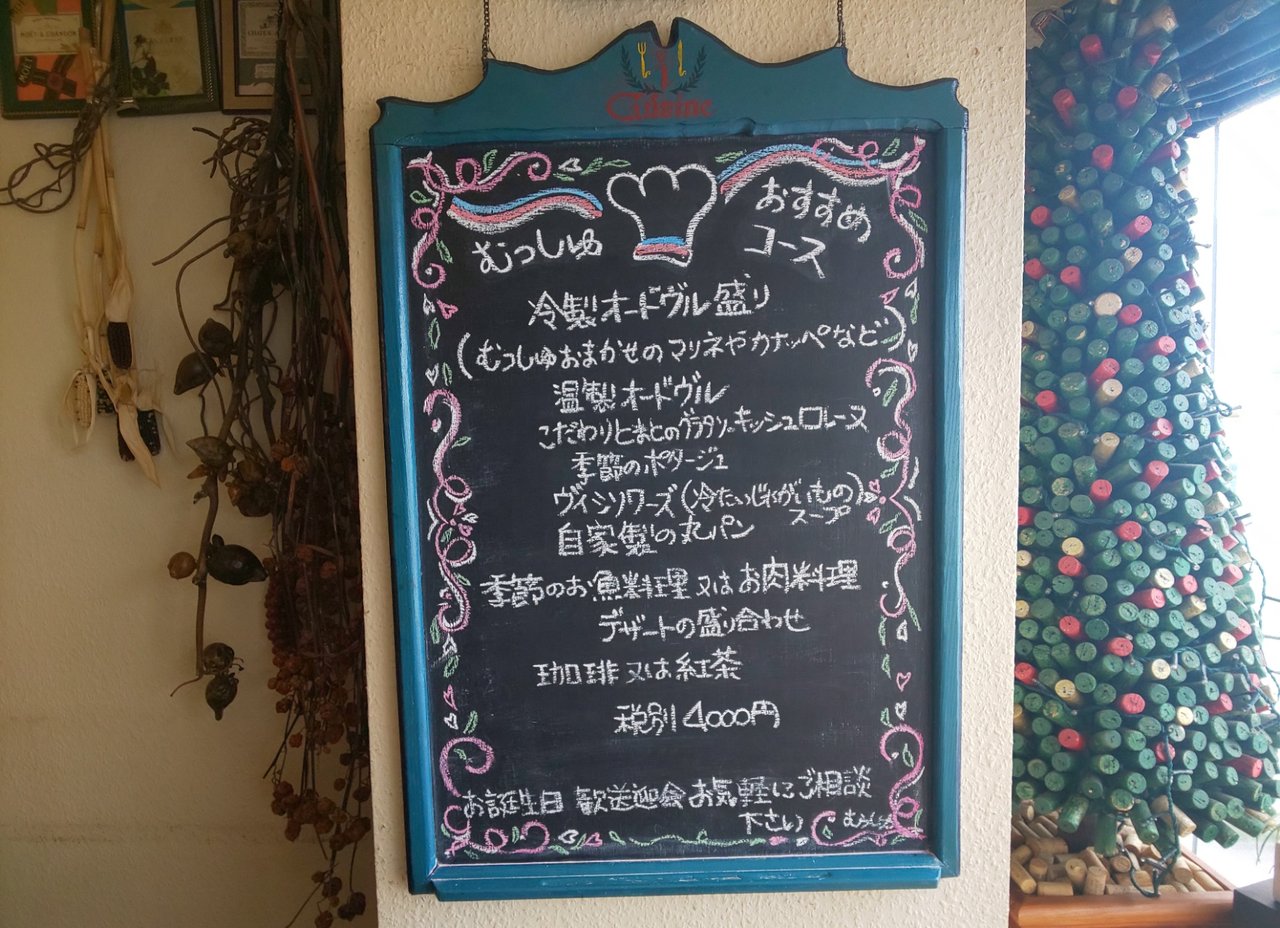 MOËT & CHANDON
Cuisine
むっしゅ
おすすめ
コース
冷製オードヴル盛り
(むっしゅおまかせのマリネやカナッペなど)
温製オードヴル
こだわりとまとのグラタン。キッシュロレーヌ
季節のポタージュ
ヴィシソワーズ(冷たいじゃがいもの)
スープ
自家製の丸パン
季節のお魚料理又はお肉料理
デザートの盛り合わせ
珈琲又は紅茶
税別4000円
お誕生日 歓送迎会 お気軽にご相談
下さい むっしゅ